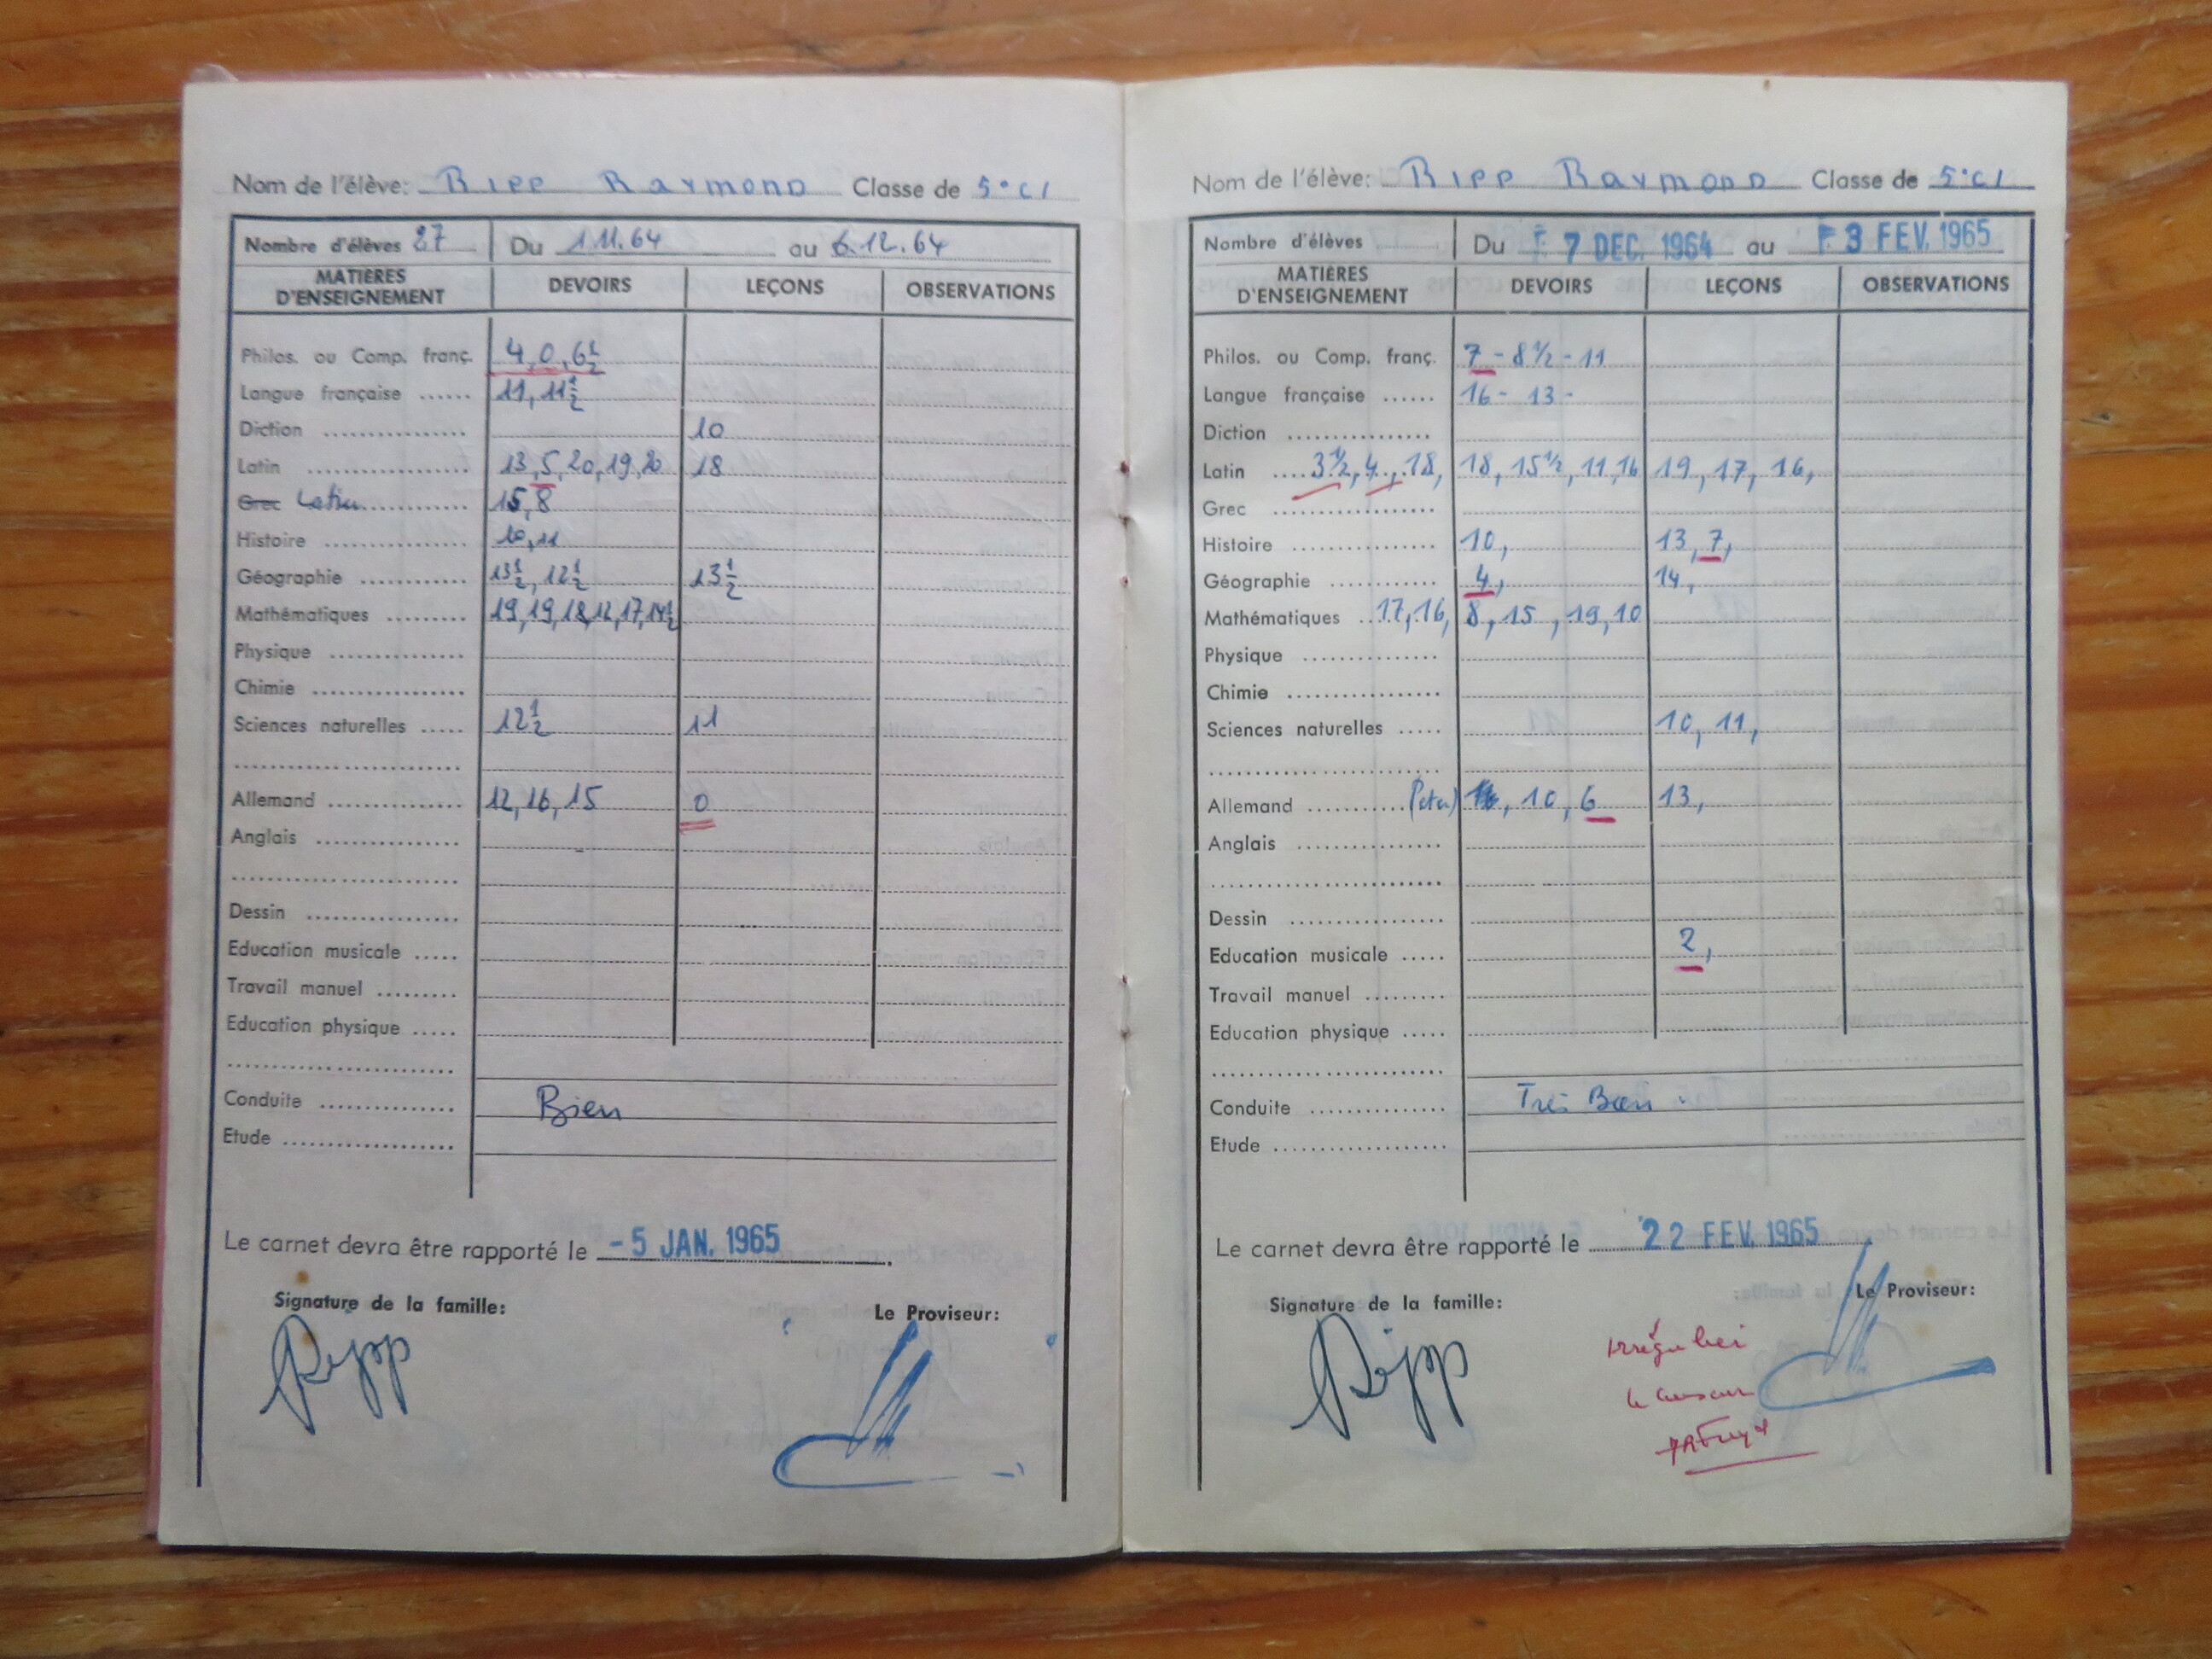 Nom de l'élève: Ripp Raymond Classe de 5°C1
Nombre d'élèves 27 Du 1.11.64 au 6.12.64
MATIÈRES D'ENSEIGNEMENT DEVOIRS LEÇONS OBSERVATIONS
Philos. ou Comp. franç. 4, 0, 6½
Langue française ...... 11, 11½
Diction ................ 10
Latin ................ 13, 5, 20, 19, 20 18
Grec Latin ............ 15, 8
Histoire ................ 10, 11
Géographie ............ 13½, 12½ 13½
Mathématiques ......... 19, 19, 18, 12, 17, 14½
Physique ................
Chimie ................
Sciences naturelles ..... 12½ 11
Allemand ............... 12, 16, 15 0
Anglais ................
Dessin ................
Education musicale .....
Travail manuel .........
Education physique .....
Conduite ............... Bien
Etude ...................
Le carnet devra être rapporté le - 5 JAN. 1965
Signature de la famille: Le Proviseur:
Ripp
Nom de l'élève: Ripp Raymond Classe de 5°C1
Nombre d'élèves Du 7 DEC. 1964 au 3 FEV. 1965
MATIÈRES D'ENSEIGNEMENT DEVOIRS LEÇONS OBSERVATIONS
Philos. ou Comp. franç. 7 - 8½ - 11
Langue française ...... 16 - 13 -
Diction ................
Latin .... 3½, 4, 18, 18, 15½, 11, 16 19, 17, 16,
Grec ..................
Histoire ................ 10, 13, 7,
Géographie ............ 4, 14,
Mathématiques .. 17, 16, 8, 15, 19, 10
Physique ...............
Chimie .................
Sciences naturelles ..... 10, 11,
Allemand .......... , 10, 6 13,
Anglais ................
Dessin .................
Education musicale ..... 2,
Travail manuel .........
Education physique .....
Conduite ............... Très Bien
Etude ...................
Le carnet devra être rapporté le 22 FEV. 1965
Signature de la famille: Le Proviseur:
Ripp
Irrégulier